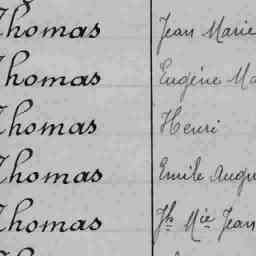 Thomas Jean Marie
Thomas Eugène Ma
Thomas Henri
Thomas Emile Augu
Thomas Jh Mie Jean